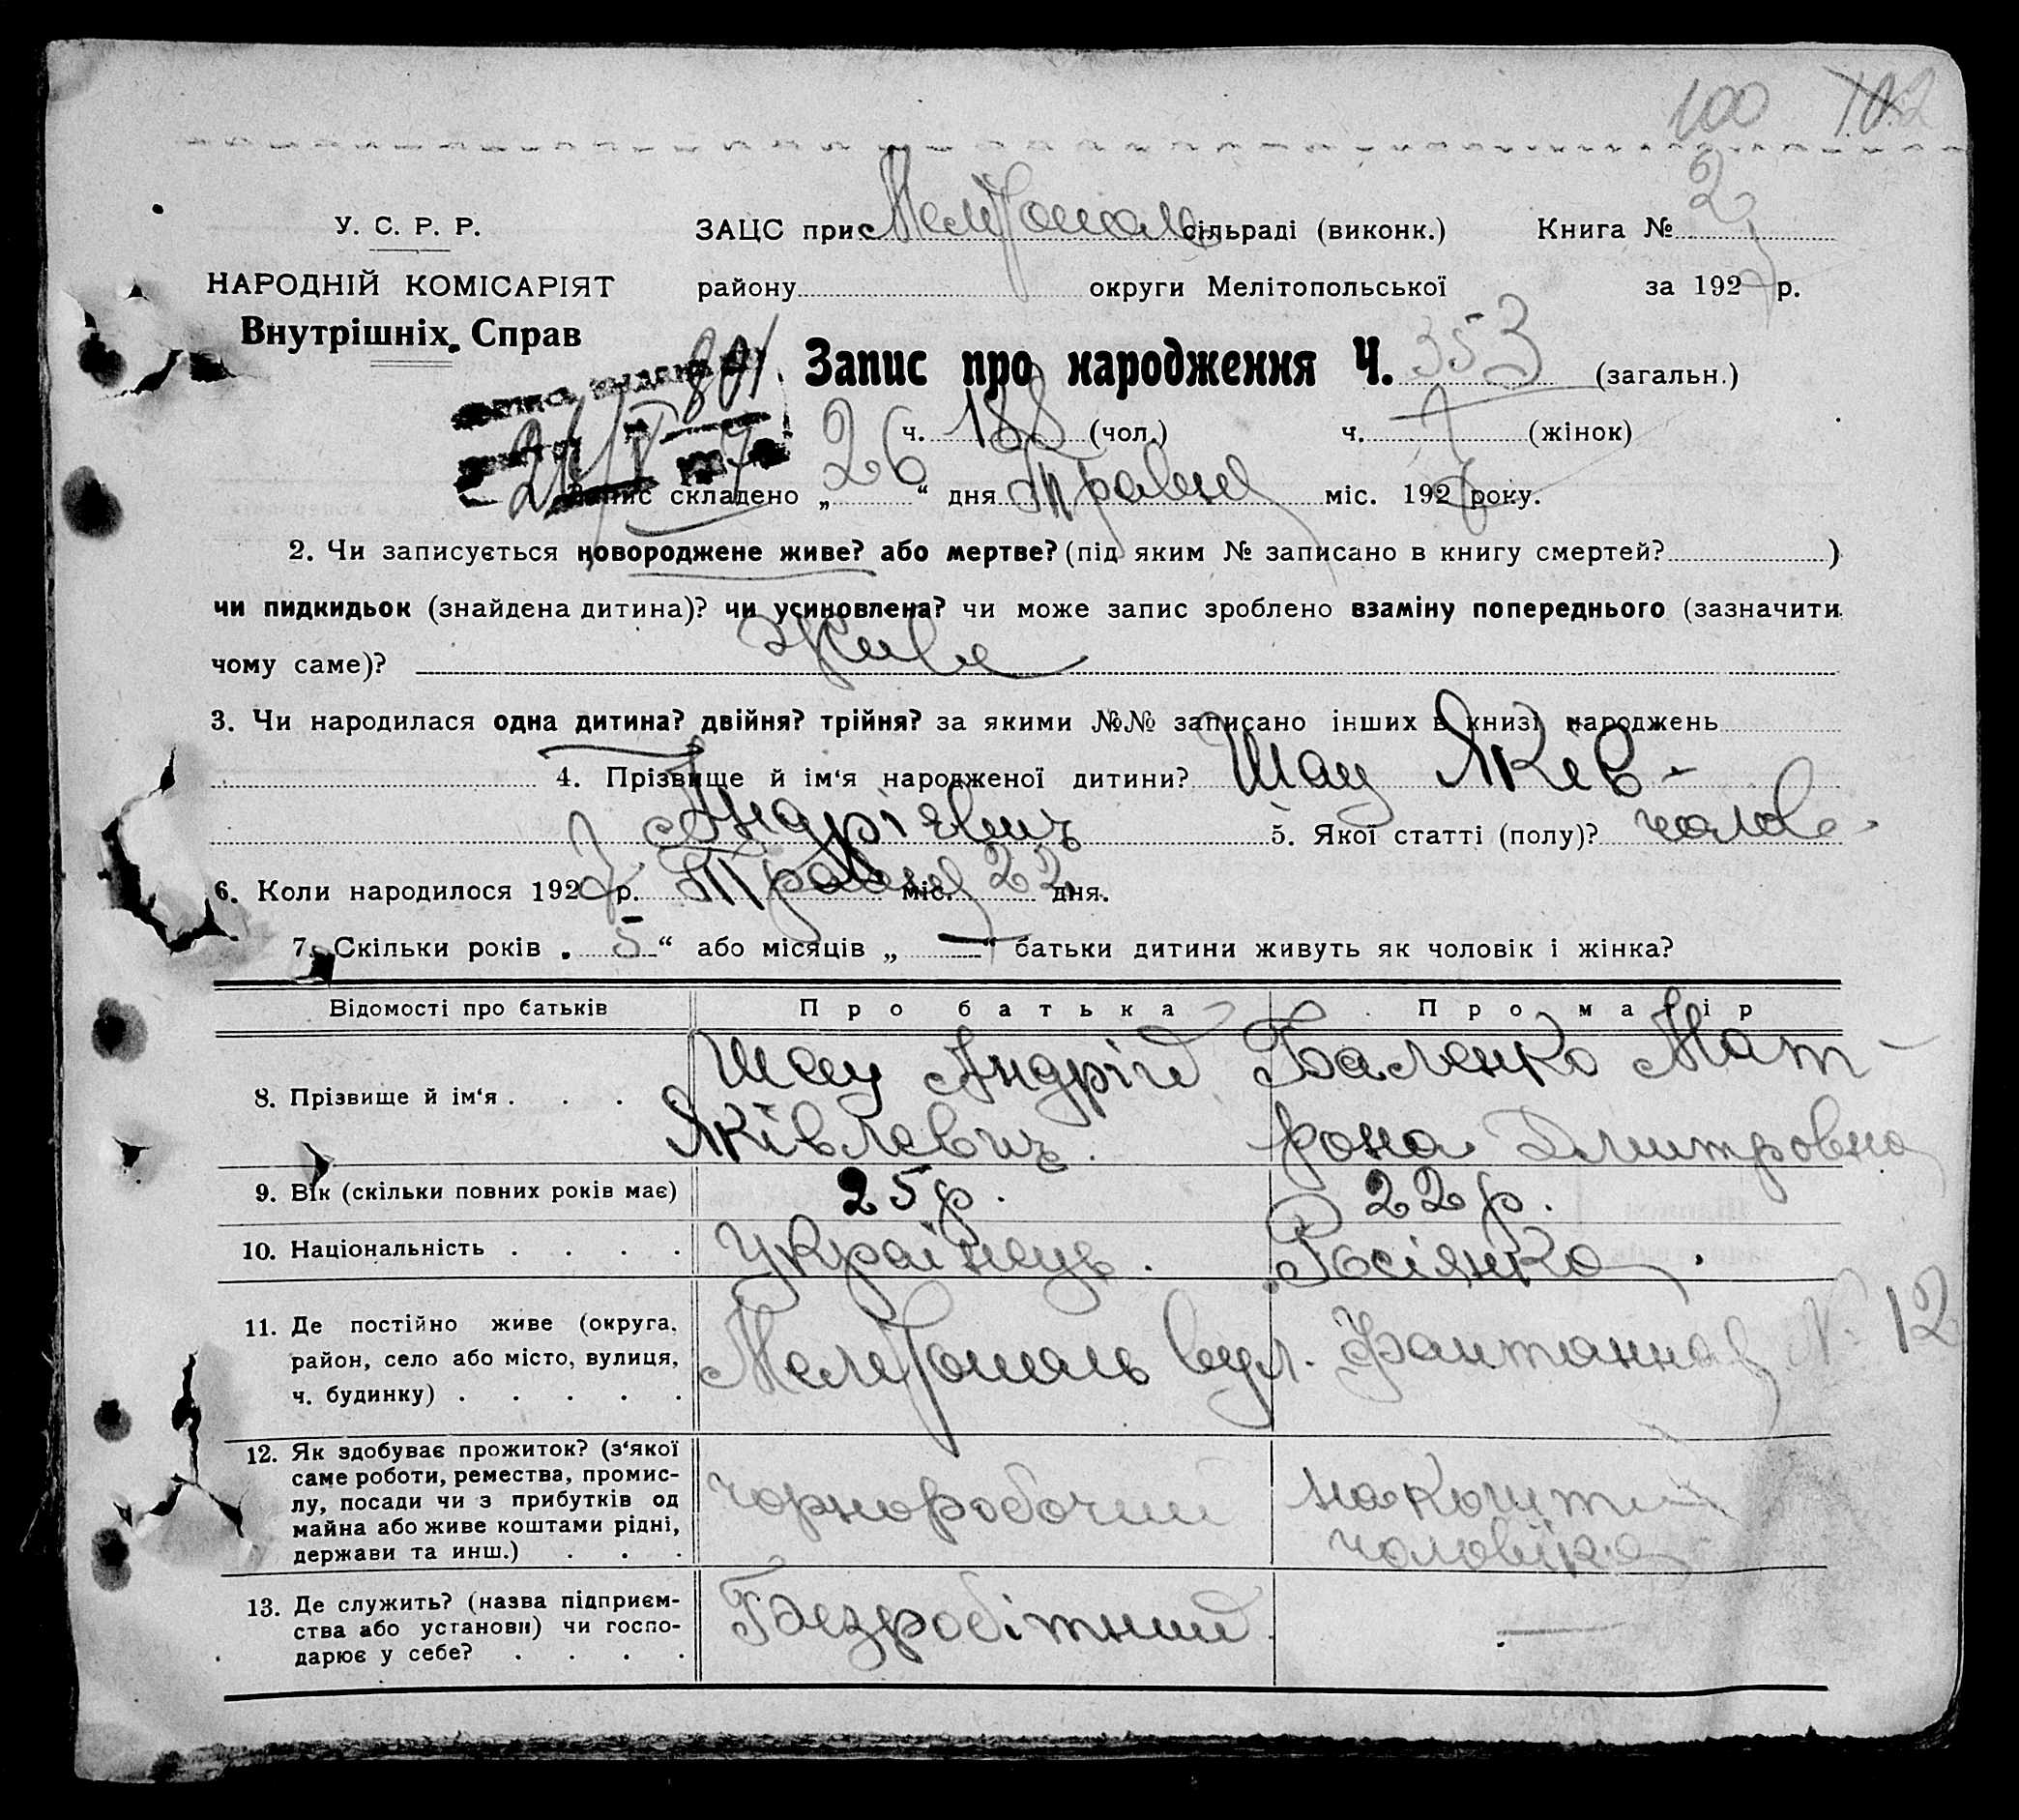 100 102
У. С. Р. Р. ЗАЦС при Мелітополь сільраді (виконк.) Книга № 2
НАРОДНІЙ КОМІСАРІЯТ району округи Мелітопольської за 1927 р.
Внутрішніх Справ
801 Запис про народження Ч. 353 (загальн.)
ч. 188 (чол.) ч. (жінок)
Запис складено „26“ дня Травня міс. 1927 року.
2. Чи записується новороджене живе? або мертве? (під яким № записано в книгу смертей? )
чи пидкидьок (знайдена дитина)? чи усиновлена? чи може запис зроблено взаміну попереднього (зазначити
чому саме)? живе
3. Чи народилася одна дитина? двійня? трійня? за якими №№ записано інших в книзі народжень
4. Прізвище й ім‘я народженої дитини? Шау Яків -
Андрієвич 5. Якої статті (полу)? чолов.
6. Коли народилося 1927 р. Травня міс. 22 дня.
7. Скільки років „5“ або місяців „—“ батьки дитини живуть як чоловік і жінка?
Відомості про батьків Про батька Про матір
8. Прізвище й ім‘я . . . Шау Андрій Баленко Мат-
Яківлевич. рона Дмитровна
9. Вік (скільки повних років має) 25 р. 22 р.
10. Національність . . . . Українець. Росіянка.
11. Де постійно живе (округа,
район, село або місто, вулиця, Мелітополь вул. Фантанна № 12
ч. будинку) . . . . .
12. Як здобуває прожиток? (з‘якої
саме роботи, ремества, промис-
лу, посади чи з прибутків од чорноробочий на кошти
майна або живе коштами рідні, чоловіка
держави та инш.) . . .
13. Де служить? (назва підприєм-
ства або установи) чи госпо- Безробітний —
дарює у себе? . . . .